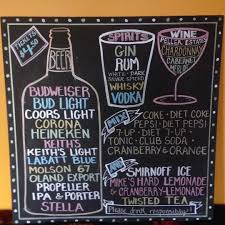 TICKETS
BEER
BUDWEISER
BUD LIGHT
COORS LIGHT
CORONA
HEINEKEN
KEITH'S
KEITH'S LIGHT
LABATT BLUE
MOLSON 67
OLAND EXPORT
PROPELLER
IPA & PORTER
STELLA
SPIRITS
GIN
RUM
WHITE - DARK
SILVER SPICED
WHISKY
VODKA
WINE
PELLER ESTATES
CHARDONNAY
CABERNET
MERLOT
MIX
COKE - DIET COKE
PEPSI - DIET PEPSI
7-UP - DIET 7-UP
TONIC - CLUB SODA
CRANBERRY & ORANGE
SMIRNOFF ICE
MIKE'S HARD LEMONADE
& CRANBERRY-LEMONADE
TWISTED TEA
Please drink responsibly!